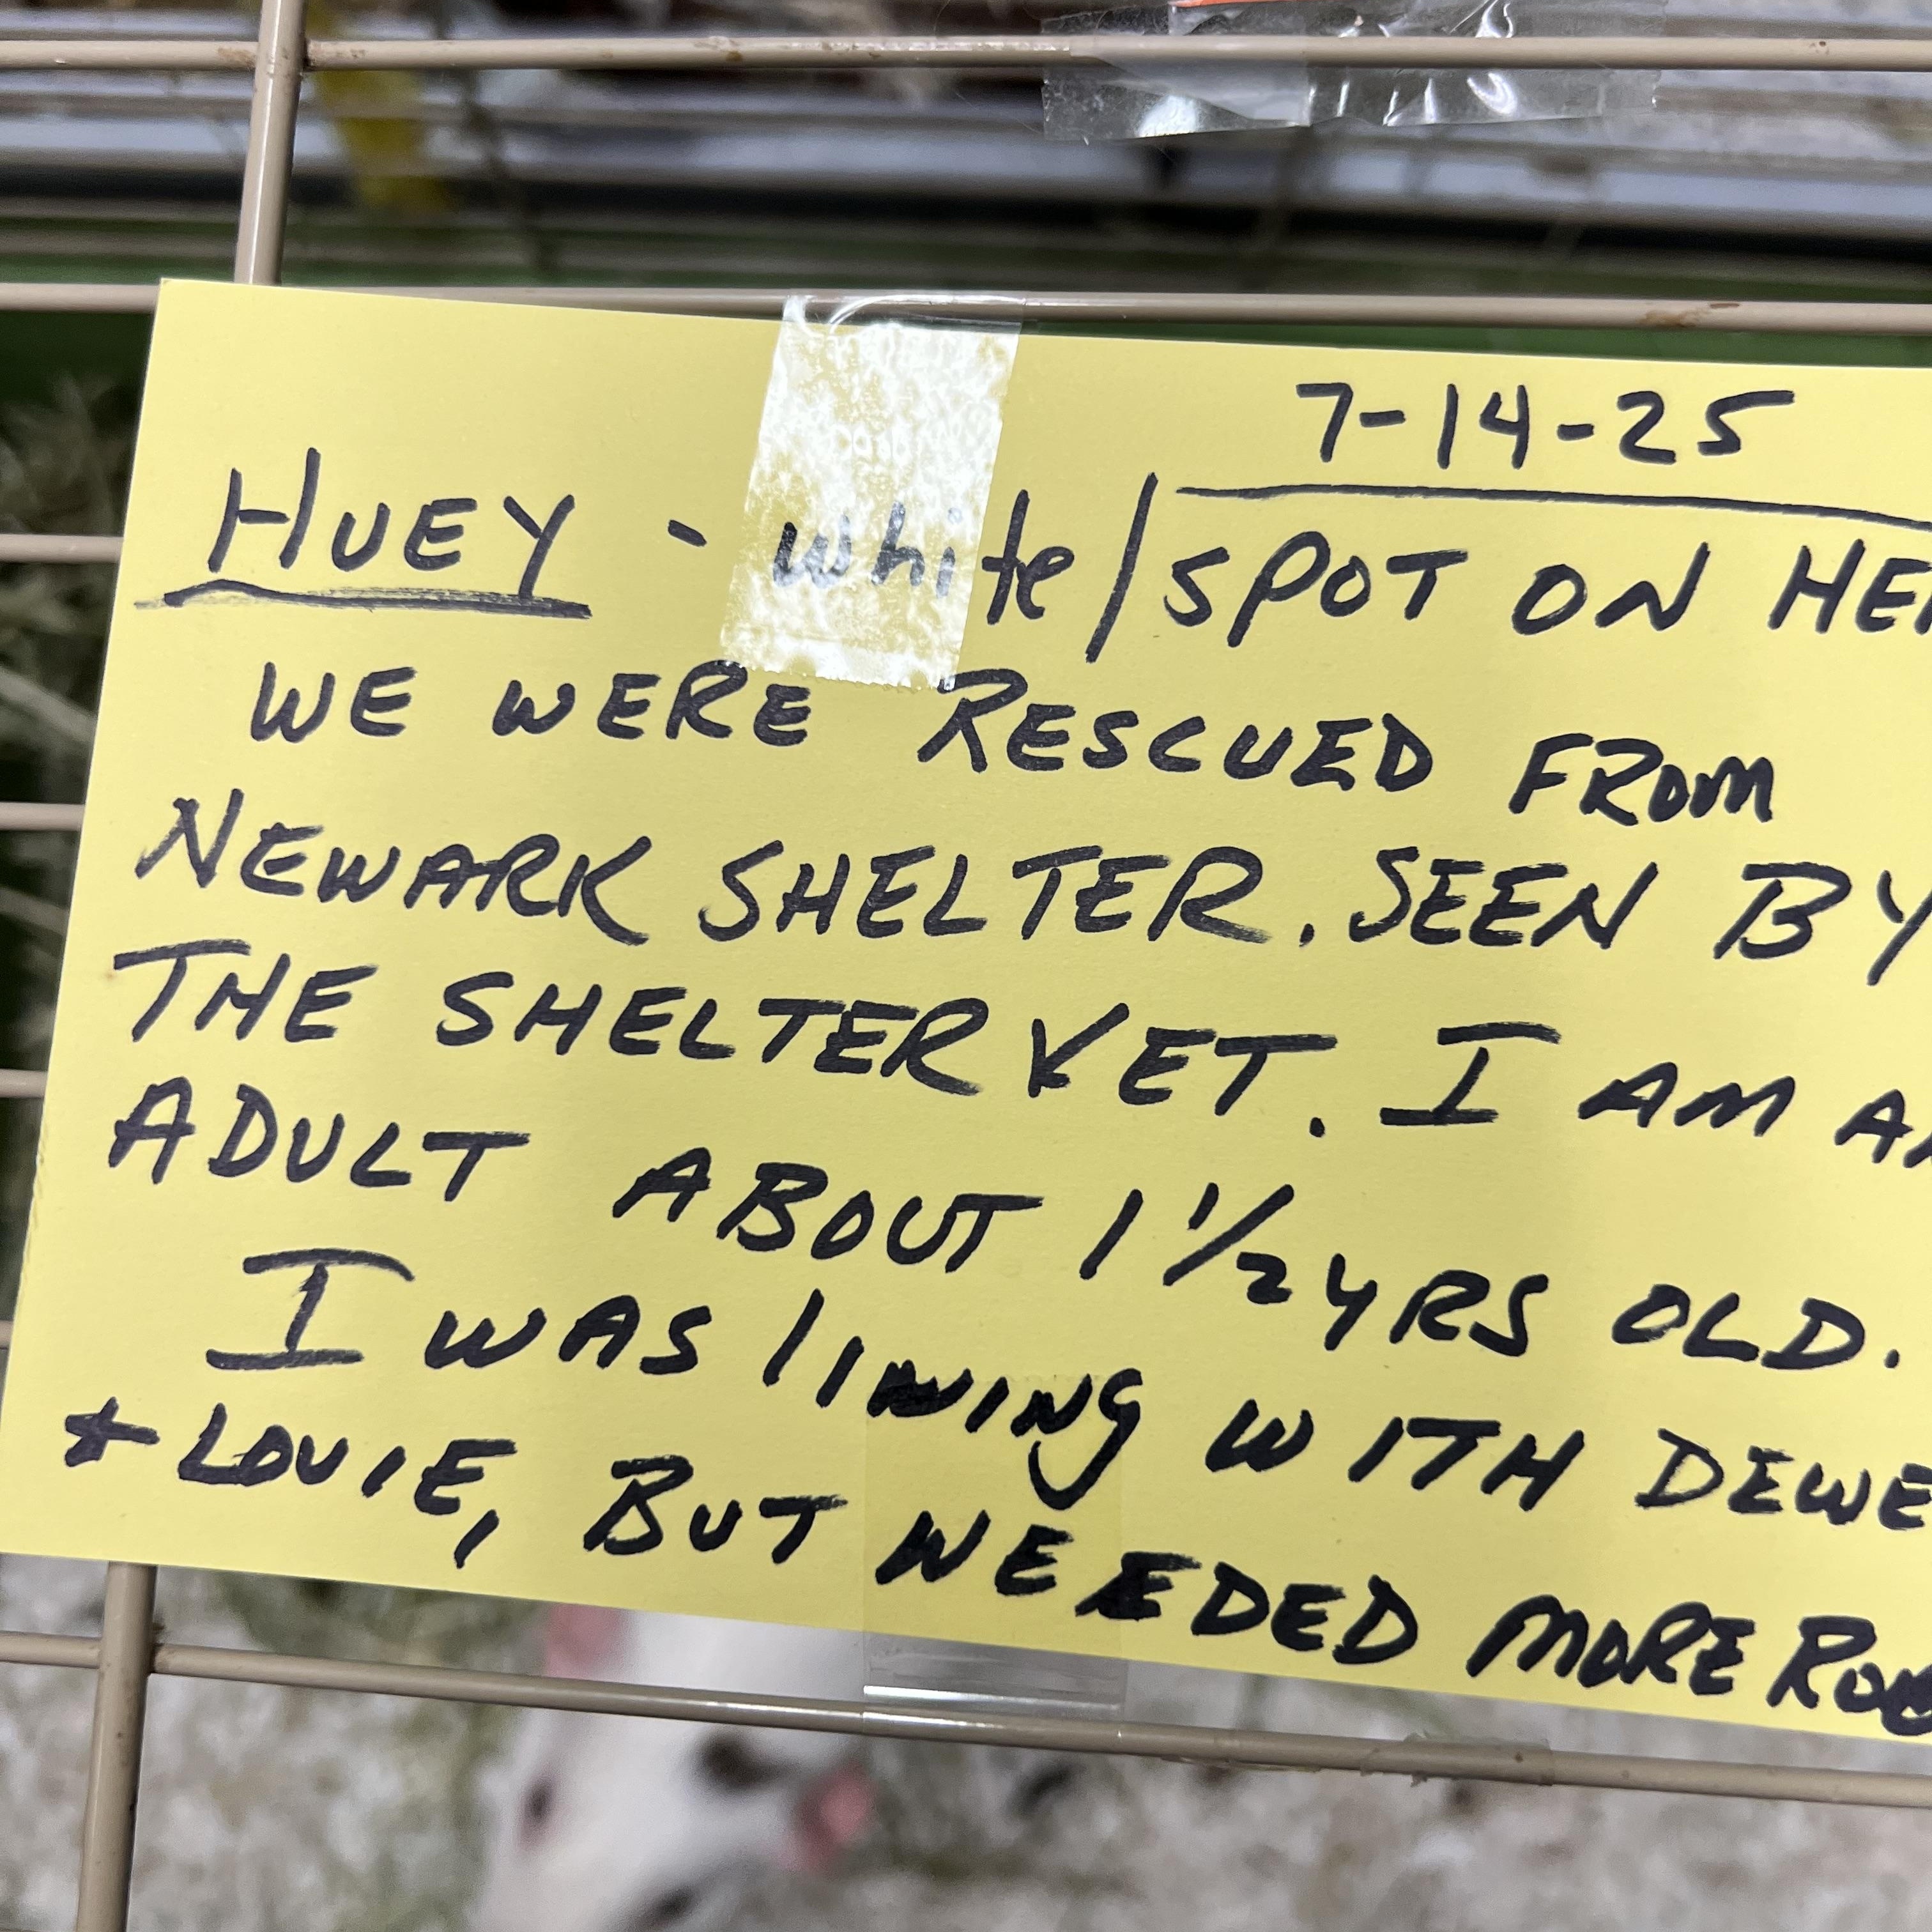 7-14-25
HUEY - white/SPOT ON HE
WE WERE RESCUED FROM
NEWARK SHELTER. SEEN BY
THE SHELTER VET. I AM A
ADULT ABOUT 1 1/2 YRS OLD.
I WAS LIVING WITH DEWE
+ LOUIE, BUT NEEDED MORE ROO